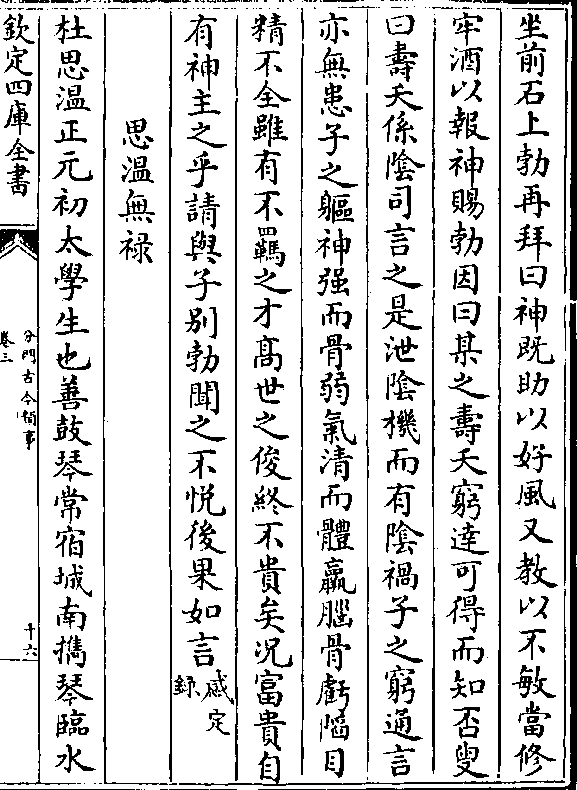 坐前石上勃再拜曰神既助以好風又教以不敏當修
牢酒以報神賜勃因曰某之壽夭窮達可得而知否叟
曰壽夭係陰司言之是泄陰機而有陰禍子之窮通言
亦無患子之軀神强而骨弱氣清而體羸腦骨虧䧟目
精不全雖有不羈之才髙世之俊終不貴矣况富貴自
有神主之乎請與子别勃聞之不悦後果如言定
戚
錄
思温無禄
杜思温正元初太學生也善鼓琴常宿城南㩗琴臨水
欽定四庫全書
分門古今類事
卷三
十六